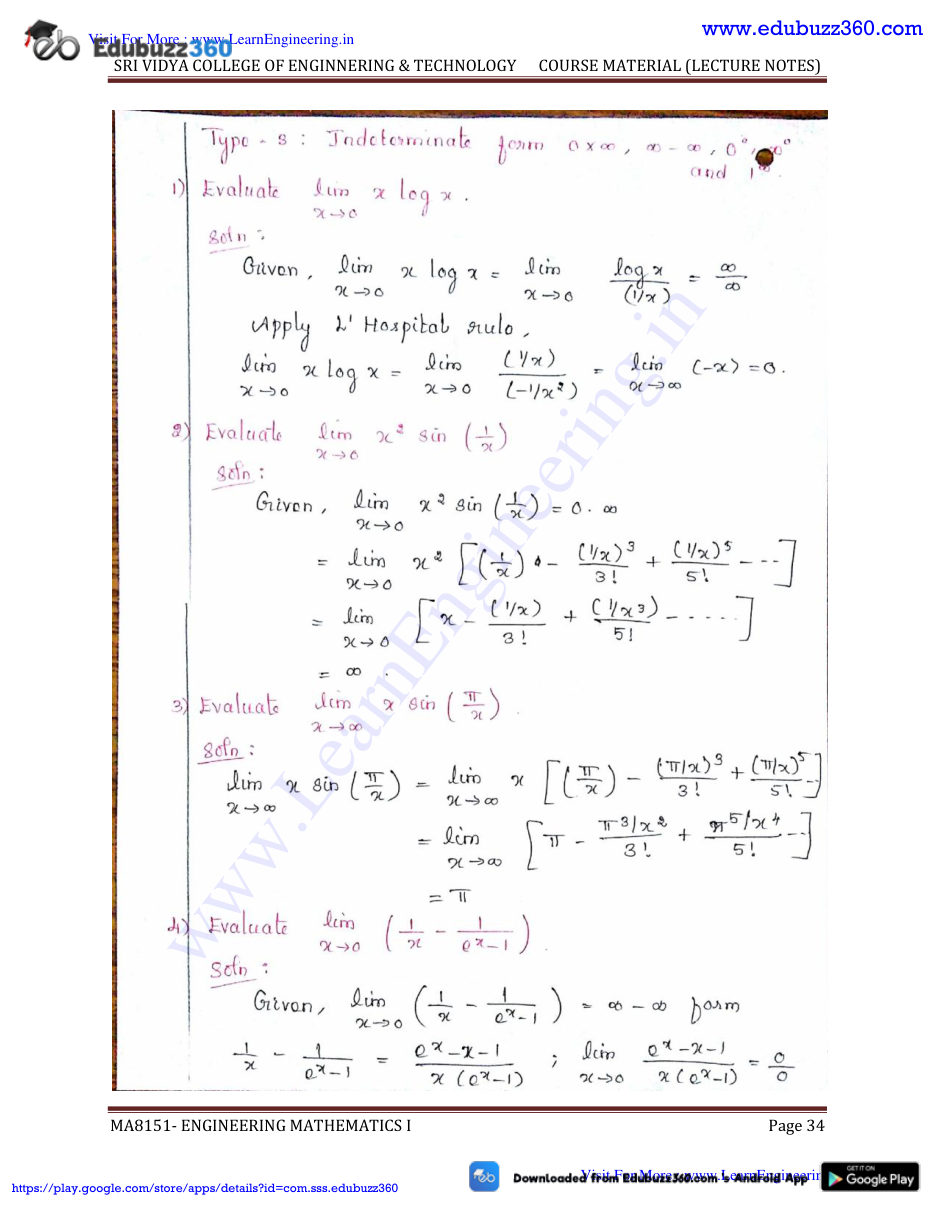 www.edubuzz360.com
Visit For More : www.LearnEngineering.in
Edubuzz360
SRI VIDYA COLLEGE OF ENGINNERING & TECHNOLOGY COURSE MATERIAL (LECTURE NOTES)
Type - 3 : Indeterminate form 0 x ∞, ∞ - ∞, 0⁰, ∞⁰
and 1^∞.
1) Evaluate lim x→0 x log x.
Soln :
Given, lim x→0 x log x = lim x→0 log x / (1/x) = ∞/∞
Apply L' Hospital rule,
lim x→0 x log x = lim x→0 (1/x) / (-1/x²) = lim x→∞ (-x) = 0.
2) Evaluate lim x→0 x² sin (1/x)
Soln :
Given, lim x→0 x² sin (1/x) = 0 . ∞
= lim x→0 x² [(1/x) - (1/x)³/3! + (1/x)⁵/5! - --]
= lim x→0 [x - (1/x)/3! + (1/x³)/5! - - - - -]
= ∞ .
3) Evaluate lim x→∞ x sin (π/x).
Soln :
lim x→∞ x sin (π/x) = lim x→∞ x [(π/x) - (π/x)³/3! + (π/x)⁵/5! --]
= lim x→∞ [π - π³/x²/3! + π⁵/x⁴/5! --]
= π
4) Evaluate lim x→0 (1/x - 1/(e^x-1)).
Soln :
Given, lim x→0 (1/x - 1/(e^x-1)) = ∞ - ∞ form
1/x - 1/(e^x-1) = (e^x-x-1)/(x(e^x-1)) ; lim x→0 (e^x-x-1)/(x(e^x-1)) = 0/0
www.LearnEngineering.in
MA8151- ENGINEERING MATHEMATICS I Page 34
https://play.google.com/store/apps/details?id=com.sss.edubuzz360
Downloaded from EduBuzz360.com 's Android App
Visit For More : www.LearnEngineerin
GET IT ON
Google Play